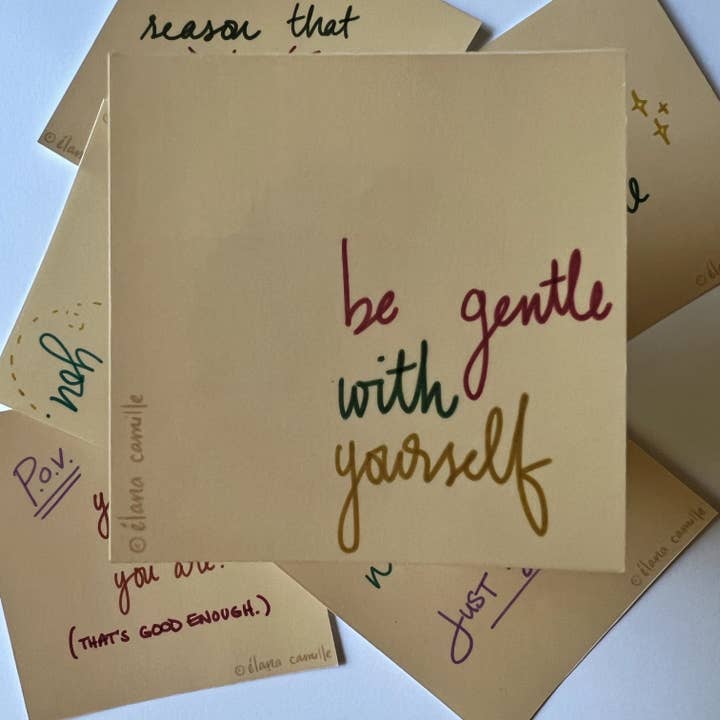 reason that
be gentle
with
yourself
© élana camille
you
P.O.V.
you are.
(THAT'S GOOD ENOUGH.)
© élana camille
JUST
© élana camille